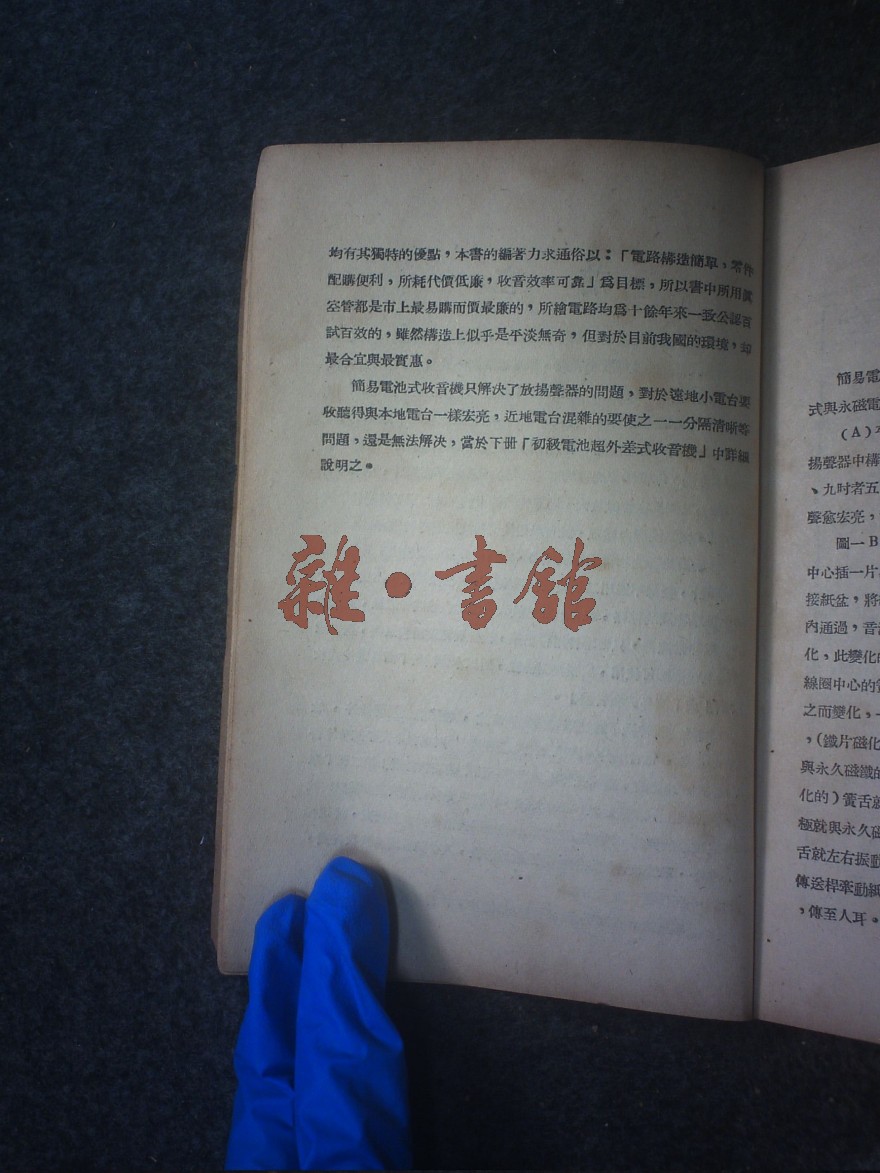 均有其獨特的優點，本書的編著力求通俗以：「電路構造簡單，零件
配購便利，所耗代價低廉，收音效率可靠」爲目標，所以書中所用眞
空管都是市上最易購而價最廉的，所繪電路均爲十餘年來一致公認百
試百效的，雖然構造上似乎是平淡無奇，但對於目前我國的環境，却
最合宜與最實惠。
簡易電池式收音機只解決了放揚聲器的問題，對於遠地小電台要
收聽得與本地電台一樣宏亮，近地電台混雜的要使之一一分隔清晰等
問題，還是無法解決，當於下册「初級電池超外差式收音機」中詳細
說明之。
雜•書館
簡易電
式與永磁電
（A）
揚聲器中構
、九吋者五
聲愈宏亮，
圖一B
中心插一片
接紙盆，將
內通過，音
化，此變化
線圈中心的
之而變化，
，（鐵片磁化
與永久磁鐵的
化的）簧舌就
極就與永久磁
舌就左右振動
傳送桿牽動紙
，傳至人耳。